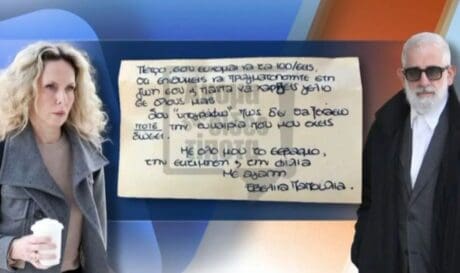 Πέτρο, σου εύχομαι να τα 100/εις,
ότι επιθυμείς να πραγματοποιηθεί στη
ζωή σου & πάντα να χαρίζεις γέλιο
σε όλους μας
Σου "υπογράφω" πως δεν θα ξεχάσω
ποτέ την ευκαιρία που μου έχεις
δώσει.
Με όλο μου το σεβασμό,
την εκτίμηση & τη φιλία
Με αγάπη
Εβελίνα Παπούλια.